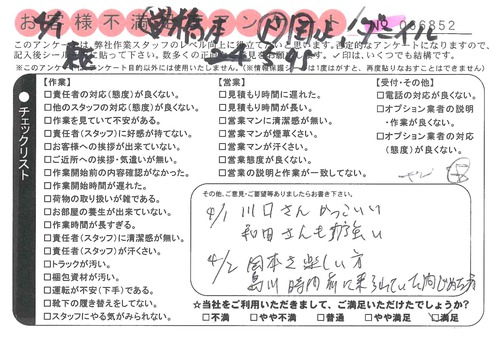 お客様不満
№ 066852
このアンケートは、弊社作業スタッフのレベル向上に役立てたいと思います。否定的なアンケートになりますので、
記入後シール
数多くの
見をお願い
す。✓印は、いくつでも結構です。
※このアンケートはアンケート目的以外には使用いたしません。(※情報保護シールは1度はがすと、再度貼りなおすことはできません)
チェックリスト
【作業】
□責任者の対応(態度)が良くない。
□他のスタッフの対応(態度)が良くない。
□作業を見ていて不安がある。
□責任者(スタッフ)に好感が持てない。
□お客様への挨拶が出来ていない。
□ご近所への挨拶・気遣いが無い。
□作業開始前の内容確認がなかった。
□作業開始時間が遅れた。
□荷物の取り扱いが雑である。
□お部屋の養生が出来ていない。
□作業時間が長すぎる。
□責任者(スタッフ)に清潔感が無い。
□責任者(スタッフ)が汗くさい。
□トラックが汚い。
□梱包資材が汚い。
□運転が不安(下手)である。
□靴下の履き替えをしてない。
□スタッフにやる気がみられない。
【営業】
□見積もり時間に遅れた。
□見積もり時間が長い。
□営業マンに清潔感が無い。
□営業マンが煙草くさい。
□営業マンが汗くさい。
□営業態度が良くない。
□営業の説明と作業が一致してない。
【受付・その他】
□電話の対応が良くない。
□オプション業者の説明
・作業が良くない。
□オプション業者の対応
(態度)が良くない。
その他、ご意見・ご要望等ありましたらお書き下さい。
4/1 川口さん かっこいい
和田さんも力強い
4/2 岡本さ 楽しい方
島川 時間前に来
☆当社をご利用いただきまして、ご満足いただけたでしょうか?
□不満 □やや不満 □普通 □やや満足 ☑満足